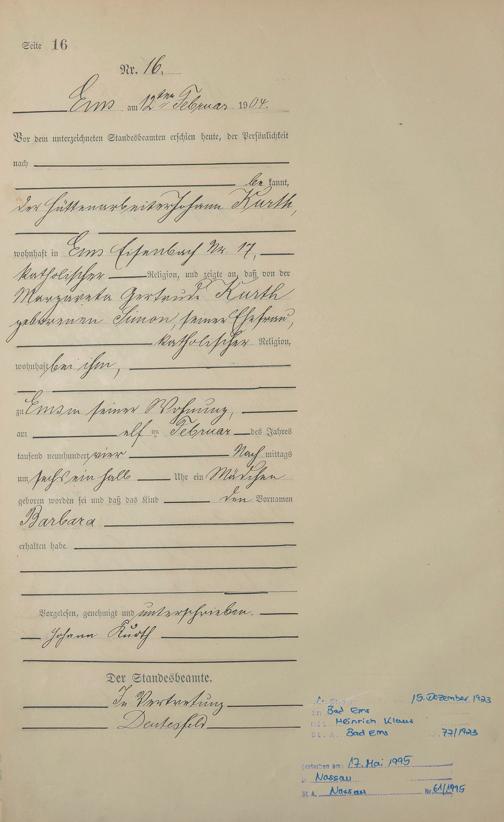 Seite 16
Nr. 16.
Ems am 12ten Februar 1904.
Vor dem unterzeichneten Standesbeamten erschien heute, der Persönlichkeit
nach
be kannt,
der Hüttenarbeiter Johann Kurth,
wohnhaft in Ems Eisenbach Nr. 17,
katholischer Religion, und zeigte an, daß von der
Margareta Gertrude Kurth
geborenen Simon, seiner Ehefrau,
katholischer Religion,
wohnhaft bei ihm,
zu Ems in seiner Wohnung,
am elf ten Februar des Jahres
tausend neunhundert vier Nach mittags
um sechs ein halb Uhr ein Mädchen
geboren worden sei und daß das Kind den Vornamen
Barbara
erhalten habe.
Vorgelesen, genehmigt und unterschrieben.
Johann Kurth
Der Standesbeamte.
In Vertretung
15. Dezember 1923
in Bad Ems
mit Heinrich Klaus
St. A. Bad Ems 77/1923
gestorben am: 17. Mai 1995
in Nassau
St A. Nassau Nr. 61/1995